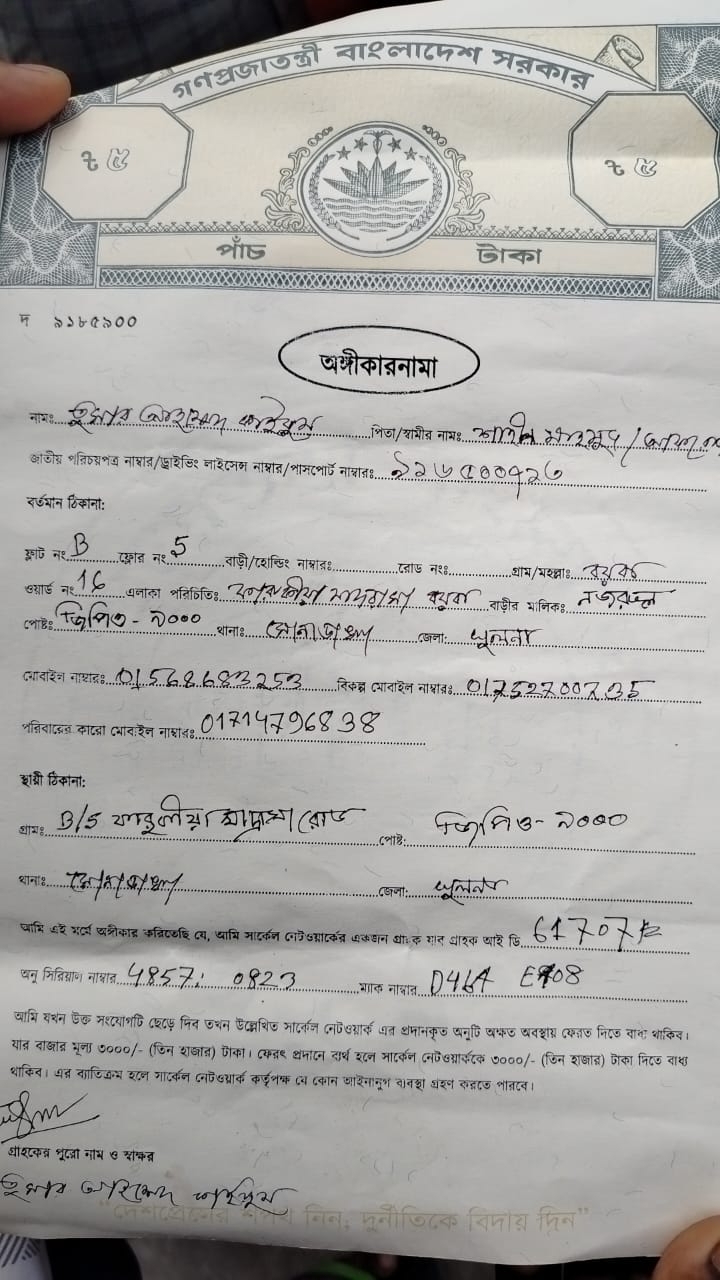 গণপ্রজাতন্ত্রী বাংলাদেশ সরকার
৳ ৫ ৳ ৫
পাঁচ টাকা
দ ৯১৮৫৯০০
অঙ্গীকারনামা
নামঃ তুষার আহমেদ কাইয়ুম পিতা/স্বামীর নামঃ শাহীন মাহমুদ /
জাতীয় পরিচয়পত্র নাম্বার/ড্রাইভিং লাইসেন্স নাম্বার/পাসপোর্ট নাম্বারঃ
বর্তমান ঠিকানা:
ফ্লাট নং B ফ্লোর নং 5 বাড়ী/হোল্ডিং নাম্বারঃ রোড নংঃ গ্রাম/মহল্লাঃ বয়রা
ওয়ার্ড নং 16 এলাকা পরিচিতিঃ মাদ্রাসা বয়রা বাড়ীর মালিকঃ নজরুল
পোষ্টঃ জিপিও - ৯০০০ থানাঃ সোনাডাঙ্গা জেলা: খুলনা
মোবাইল নাম্বারঃ 01568683253 বিকল্প মোবাইল নাম্বারঃ
পরিবারের কারো মোবাইল নাম্বারঃ 01714796838
স্থায়ী ঠিকানা:
গ্রামঃ B/5 মাদ্রাসা রোড পোষ্ট: জিপিও - ৯০০০
থানাঃ সোনাডাঙ্গা জেলা: খুলনা
আমি এই মর্মে অঙ্গীকার করিতেছি যে, আমি সার্কেল নেটওয়ার্কের একজন গ্রাহক যার গ্রাহক আই ডি 61707
অনু সিরিয়াল নাম্বার 4857: 0823 ম্যাক নাম্বার D46A
আমি যখন উক্ত সংযোগটি ছেড়ে দিব তখন উল্লেখিত সার্কেল নেটওয়ার্ক এর প্রদানকৃত অনুটি অক্ষত অবস্থায় ফেরত দিতে বাধ্য থাকিব।
যার বাজার মূল্য ৩০০০/- (তিন হাজার) টাকা। ফেরৎ প্রদানে ব্যর্থ হলে সার্কেল নেটওয়ার্ককে ৩০০০/- (তিন হাজার) টাকা দিতে বাধ্য
থাকিব। এর ব্যতিক্রম হলে সার্কেল নেটওয়ার্ক কর্তৃপক্ষ যে কোন আইনানুগ ব্যবস্থা গ্রহণ করতে পারবে।
গ্রাহকের পুরো নাম ও স্বাক্ষর
তুষার আহমেদ কাইয়ুম
"দেশপ্রেমের শপথ নিন, দুর্নীতিকে বিদায় দিন"